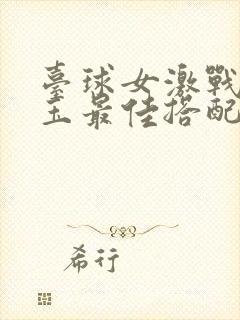 臺球女激戰
玉最佳搭配
希行